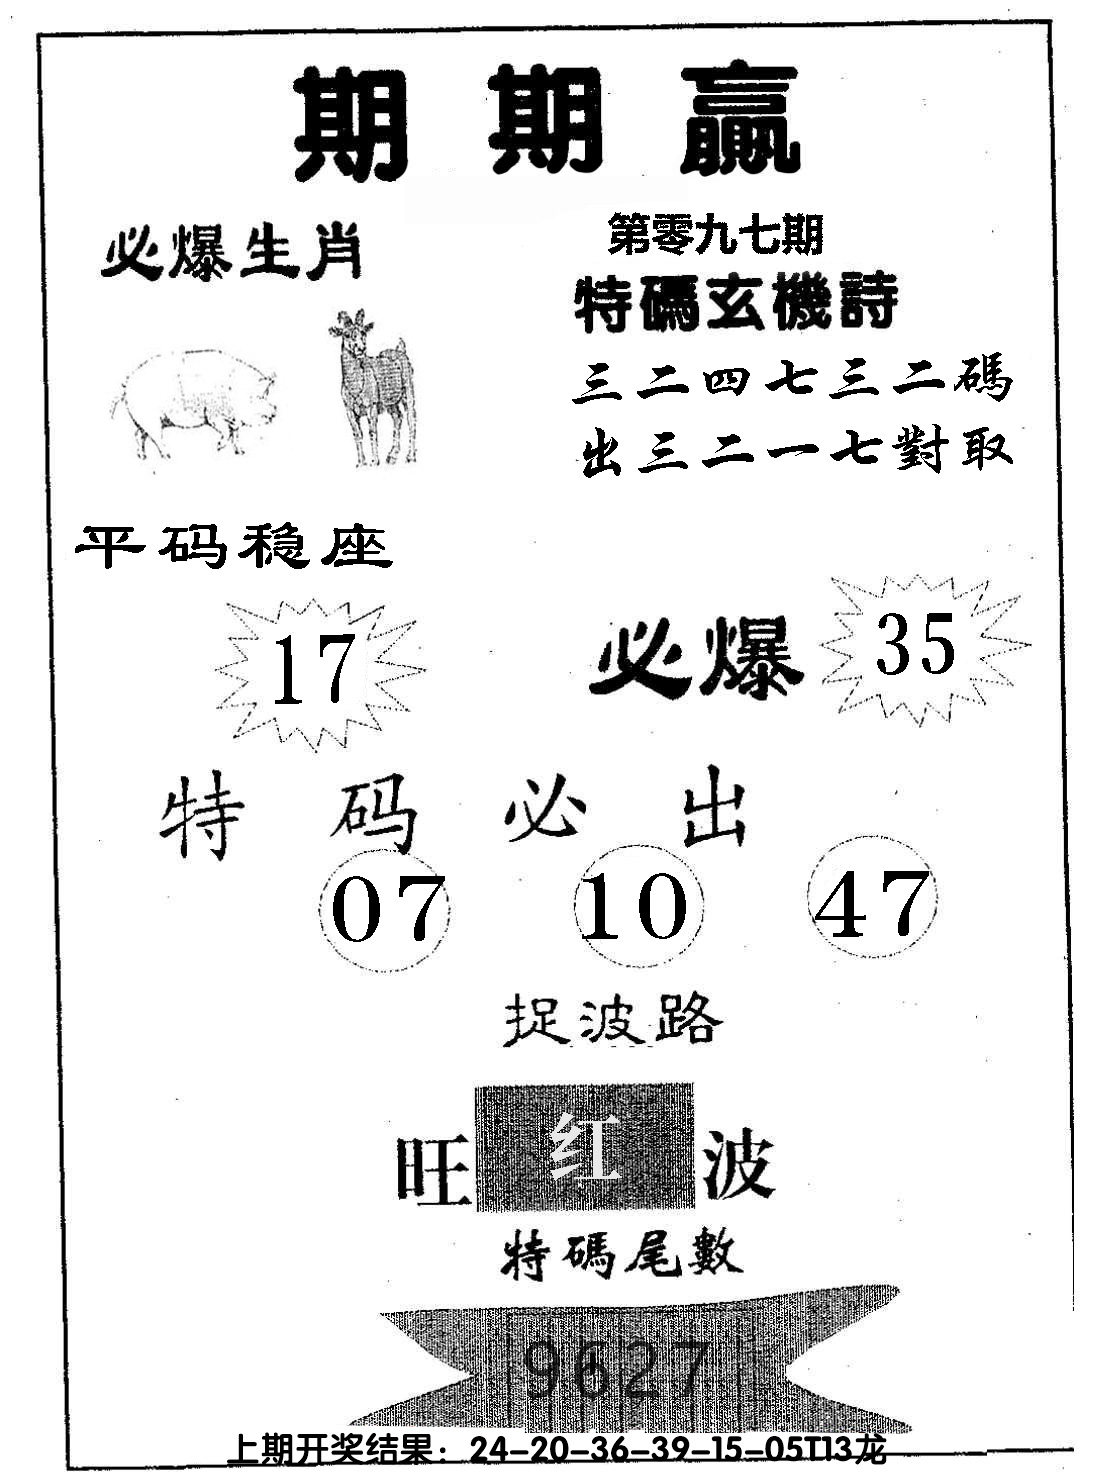 期期赢
必爆生肖
第零九七期
特碼玄機詩
三二四七三二碼
出三二一七對取
平码稳座
17
必爆 35
特码必出
07 10 47
捉波路
旺 红 波
特碼尾數
9627
上期开奖结果：24-20-36-39-15-05T13龙